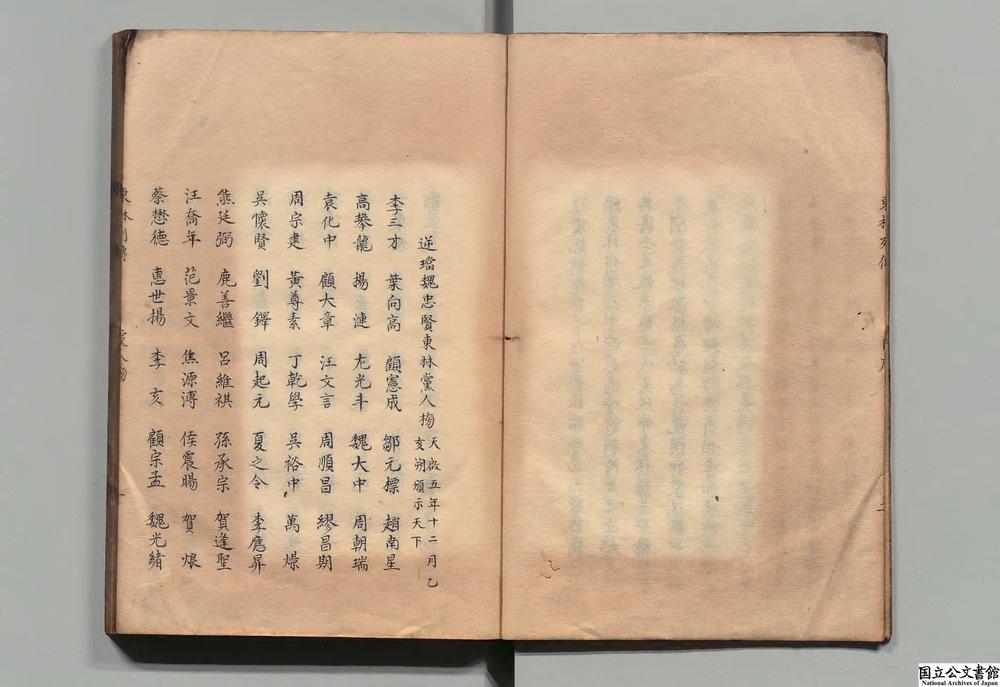 逆璫魏忠賢東林黨人榜天啟五年十二月乙
亥朔頒示天下
李三才 葉向高 顧憲成 鄒元標 趙南星
高攀龍 楊漣 左光斗 魏大中 周朝瑞
袁化中 顧大章 汪文言 周順昌 繆昌期
周宗建 黃尊素 丁乾學 吳裕中 萬燝
吳懷賢 劉鐸 周起元 夏之令 李應昇
熊廷弼 鹿善繼 呂維祺 孫承宗 賀逢聖
汪喬年 范景文 焦源溥 侯震暘 賀烺
蔡懋德 惠世揚 李亥 顧宗孟 魏光緒
東林列傳
國立公文書館
National Archives of Japan